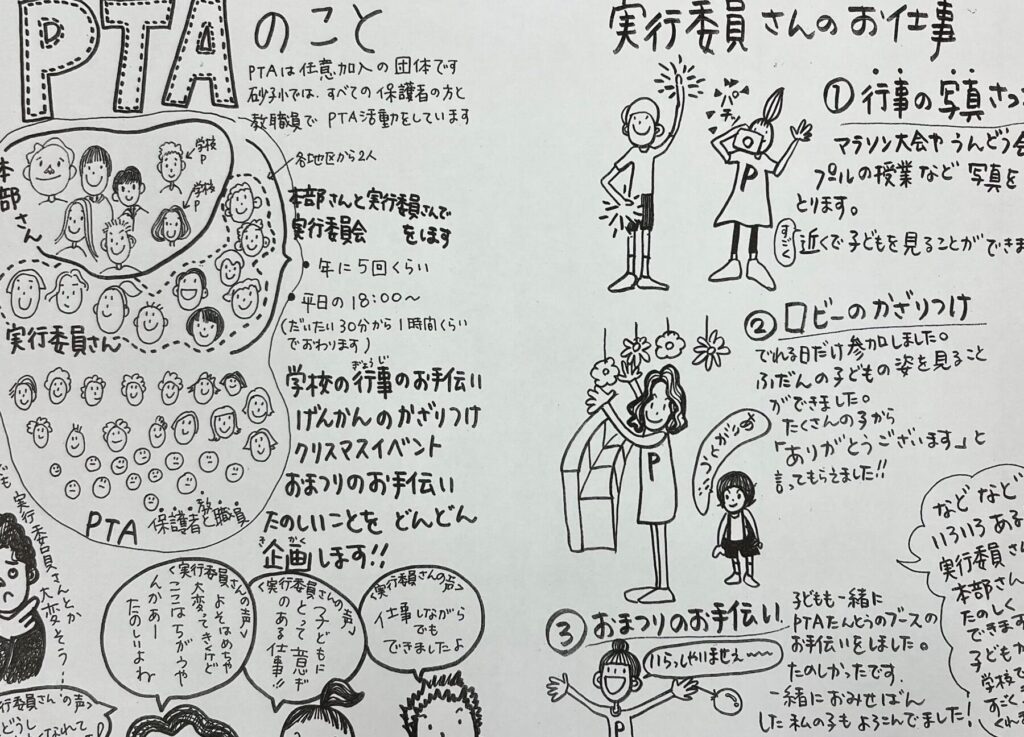 PTAのこと
PTAは任意加入の団体です
砂子小では、すべての保護者の方と
教職員でPTA活動をしています
各地区から2人
本部さん
学校P
学校P
本部さんと実行委員さんで
実行委員会をします
・年に5回くらい
・平日の18:00〜
(だいたい30分から1時間くらい
でおわります)
実行委員さん
学校の行事のお手伝い
ぎょうじ
げんかんのかざりつけ
クリスマスイベント
おまつりのお手伝い
たのしいことをどんどん
企画します!!
きかく
PTA
保護者と教職員
実行委員さんとか
大変そう…
<実行委員さんの声>
よそはめちゃ
大変ってきくけど
ここはちがうや
んかぁー
たのしいよね
<実行委員さんの声>
子どもに
とって意ギ
のある仕事!!
<実行委員さんの声>
仕事しながら
でも
できましたよ
実行委員さんの声>
どうし
くなれて
実行委員さんのお仕事
①行事の写真さつ
マラソン大会やうんどう会
プールの授業など写真を
とります。
すごく
近くで子どもを見ることができま
P
②ロビーのかざりつけ
でれる日だけ参加しました。
ふだんの子どもの姿を見ること
ができました。
たくさんの子から
「ありがとうございます」と
言ってもらえました!!
ありがとう
P
などなど
いろいろある
実行委員さん
本部さん
たのしく
できます
子どもが
学校で
すごく
くれ
③おまつりのお手伝い
子どもも一緒に
PTAたんとうのブースの
お手伝いをしました。
たのしかったです。
一緒におみせばん
した私の子もよろこんでました!
いらっしゃいませぇ〜〜
P